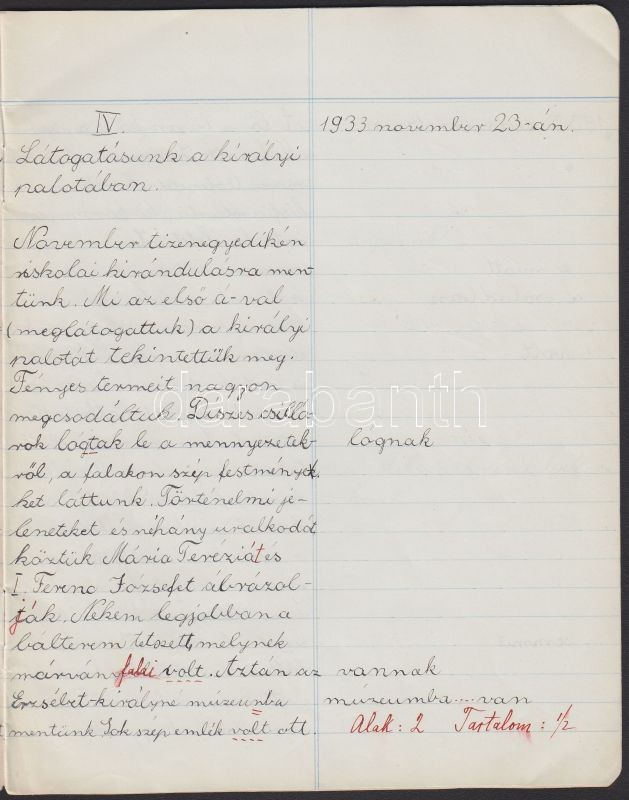 IV.
1933 november 23-án.
Látogatásunk a királyi
palotában.
November tizenegyedikén
iskolai kirándulásra men-
tünk. Mi az első á-val
(meglátogattuk) a királyi
palotát tekintettük meg.
Fényes termeit nagyon
megcsodáltuk. Díszes csillá-
rok lógtak le a mennyezetek-
lógnak
ről, a falakon szép festménye-
ket láttunk. Történelmi je-
leneteket és néhány uralkodót
köztük Mária Teréziát és
I. Ferenc Józsefet ábrázol-
ták. Nekem legjobban a
bálterem tetszett, melynek
márvány falai volt. Aztán az
vannak
Erzsébet-királyné múzeunba
múzeumba....van
mentünk Sok szép emlék volt ott.
Alak: 2 Tartalom: 1/2
darabanth